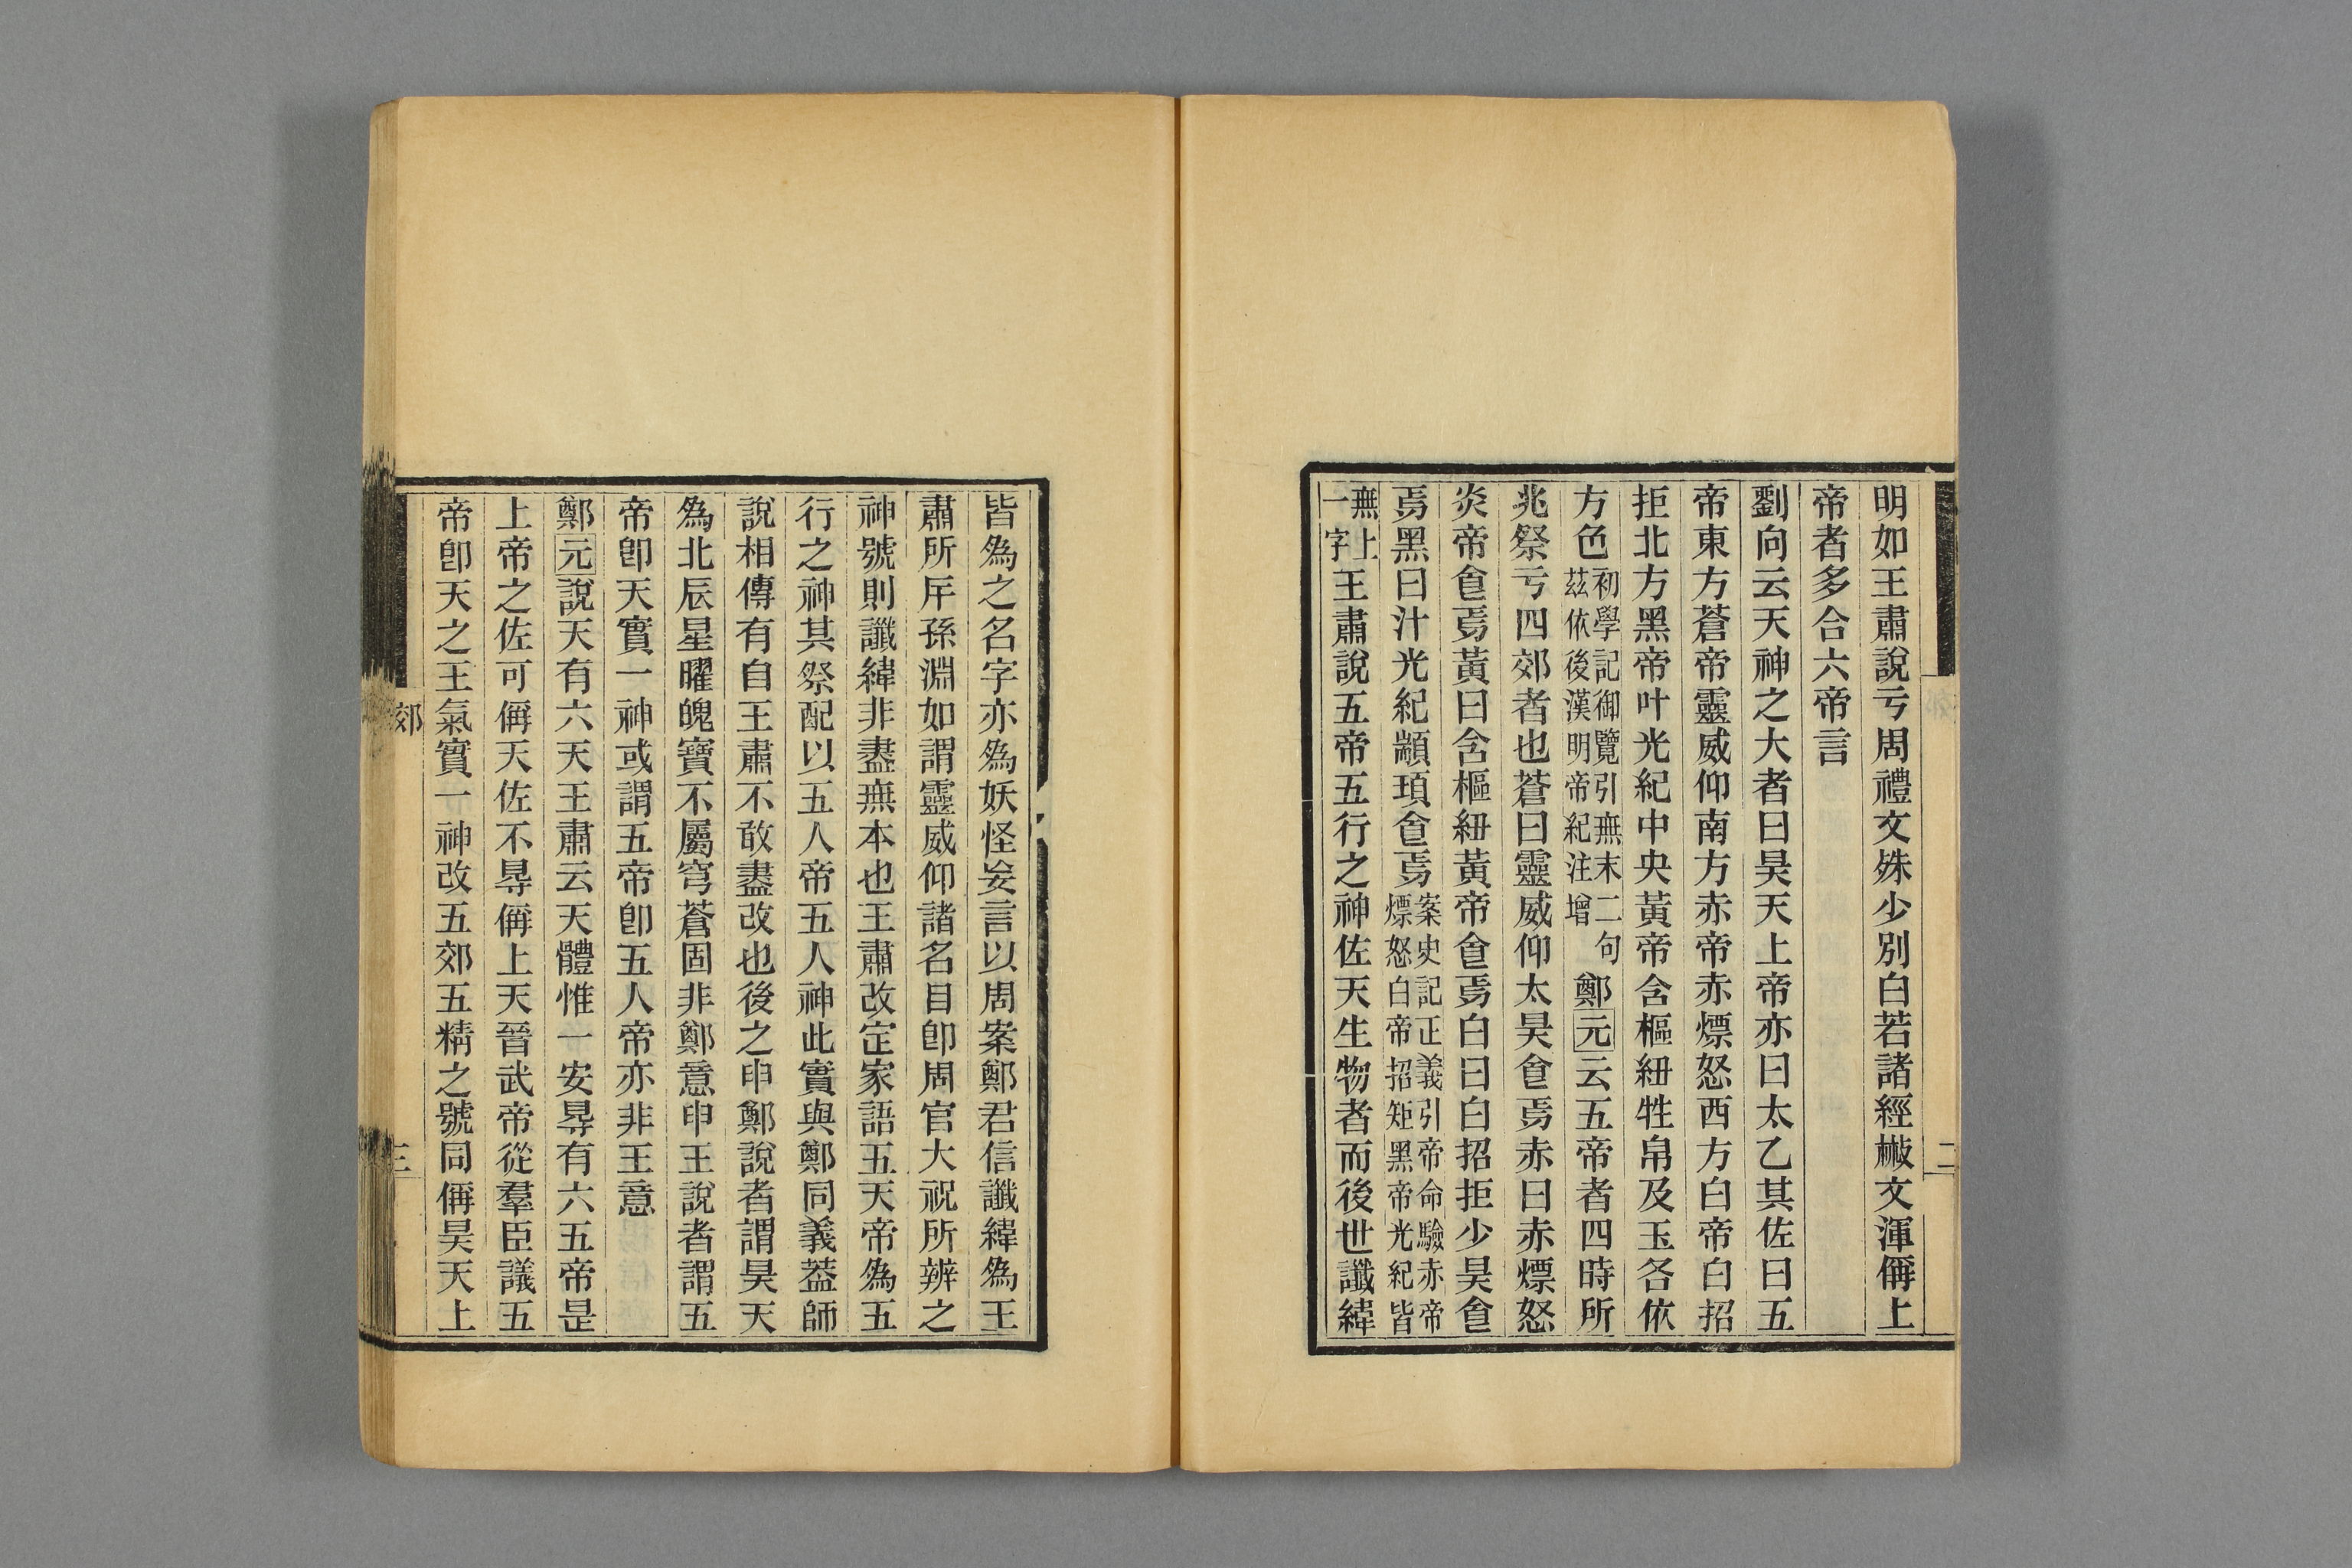 明如王肅說亏周禮文殊少別白若諸經㪚文渾偁上
帝者多合六帝言
劉向云天神之大者曰昊天上帝亦曰太乙其佐曰五
帝東方蒼帝靈威仰南方赤帝赤熛怒西方白帝白招
拒北方黑帝叶光紀中央黃帝含樞紐牲帛及玉各依
方色初學記御覽引無末二句茲依後漢明帝紀注增鄭元云五帝者四時所
兆祭亏四郊者也蒼曰靈威仰太昊食焉赤曰赤熛怒
炎帝食焉黃曰含樞紐黃帝食焉白曰白招拒少昊食
焉黑曰汁光紀顓頊食焉案史記正義引帝命驗赤帝熛怒白帝招矩黑帝光紀皆
無上一字王肅說五帝五行之神佐天生物者而後世讖緯
皆爲之名字亦爲妖怪妄言以周案鄭君信讖緯爲王
肅所㡿孫淵如謂靈威仰諸名目卽周官大祝所辨之
神號則讖緯非盡無本也王肅改定家語五天帝爲五
行之神其祭配以五人帝五人神此實與鄭同義葢師
說相傳有自王肅不敢盡改也後之申鄭說者謂昊天
爲北辰星曜魄寶不屬穹蒼固非鄭意申王說者謂五
帝卽天實一神或謂五帝卽五人帝亦非王意
鄭元說天有六天王肅云天體惟一安㝵有六五帝是
上帝之佐可偁天佐不㝵偁上天晉武帝從羣臣議五
帝卽天之王氣實一神改五郊五精之號同偁昊天上
郊
三
二